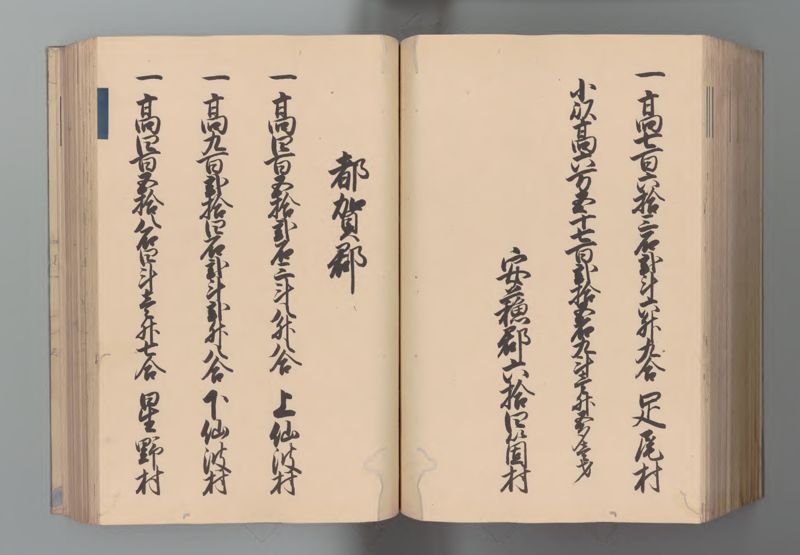 一高七百六拾三石弐斗六升九合 足尾村
小以高六万五千七百弐拾五石九斗壱升五合
安蘇郡六拾四箇村
都賀郡
一高四百五拾弐石三斗八升八合 上仙波村
一高九百弐拾四石弐斗弐升八合 下仙波村
一高四百五拾八石四斗壱升七合 星野村